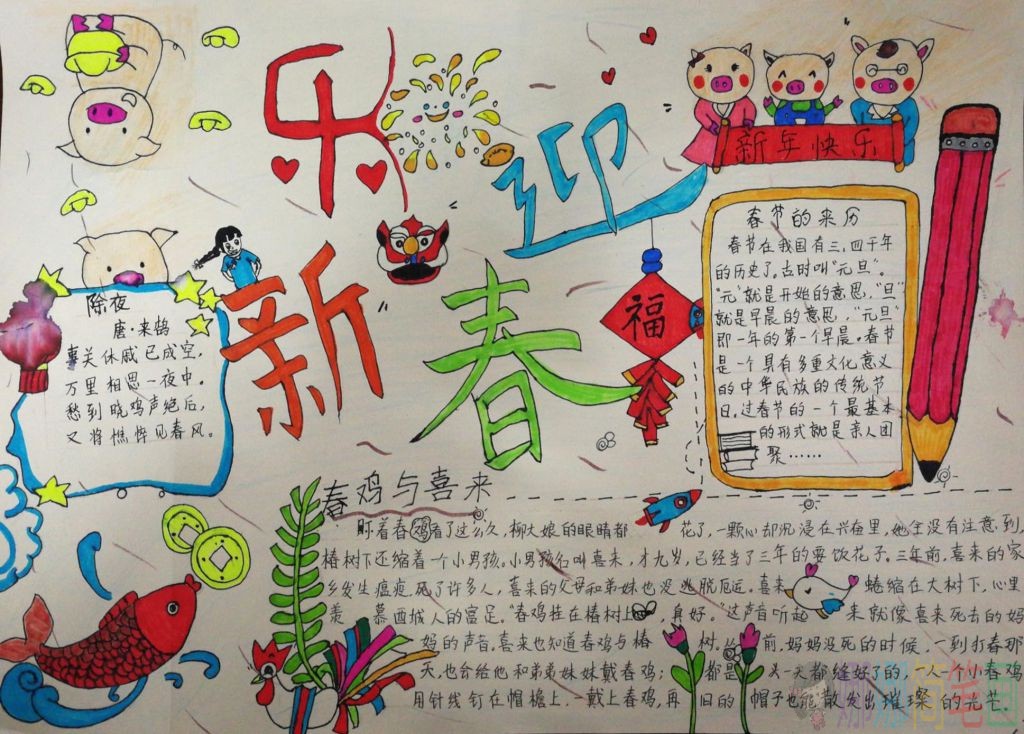 乐
迎
新
春
新年快乐
福
除夜
唐·来鹄
事关休戚已成空，
万里相思一夜中。
愁到晓鸡声绝后，
又将憔悴见春风。
春节的来历
春节在我国有三、四千年
的历史了。古时叫"元旦"。
"元"就是开始的意思，"旦"
就是早晨的意思，"元旦"
即一年的第一个早晨。春节
是一个具有多重文化意义
的中华民族的传统节
日。过春节的一个最基本
的形式就是亲人团
聚……
春鸡与喜来
盯着春鸡看了这么久，柳大娘的眼睛都花了，一颗心却沉浸在兴奋里，她全没有注意到
椿树下还缩着一个小男孩。小男孩名叫喜来，才九岁，已经当了三年的要饭花子。三年前，喜来的家
乡发生瘟疫，死了许多人，喜来的父母和弟妹也没逃脱厄运。喜来蜷缩在大树下，心里
羡慕西城人的富足。"春鸡挂在椿树上，身好。"这声音听起来就像喜来死去的妈
妈的声音，喜来也知道春鸡与椿树。以前，妈妈没死的时候，一到打春那
天，也会给他和弟弟妹妹戴春鸡；都是头一天都缝好了的，一人一个小春鸡
用针线钉在帽檐上，一戴上春鸡，再旧的帽子也能散发出璀璨的光芒。